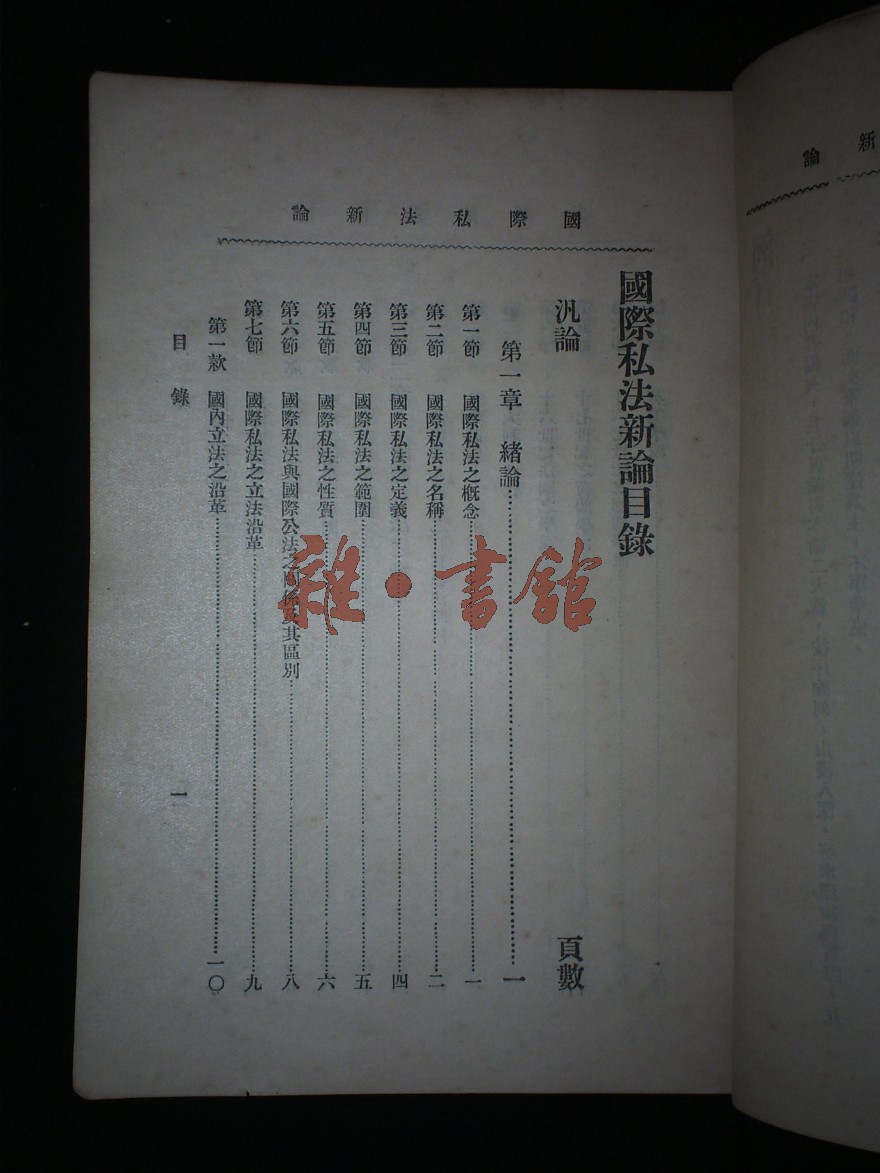 國際私法新論
國際私法新論目錄
汎論 頁數
第一章 緒論 一
第一節 國際私法之概念 一
第二節 國際私法之名稱 二
第三節 國際私法之定義 四
第四節 國際私法之範圍 五
第五節 國際私法之性質 六
第六節 國際私法與國際公法之關係及其區別 八
第七節 國際私法之立法沿革 九
第一款 國內立法之沿革 一〇
目錄 一
雜·書館
新論